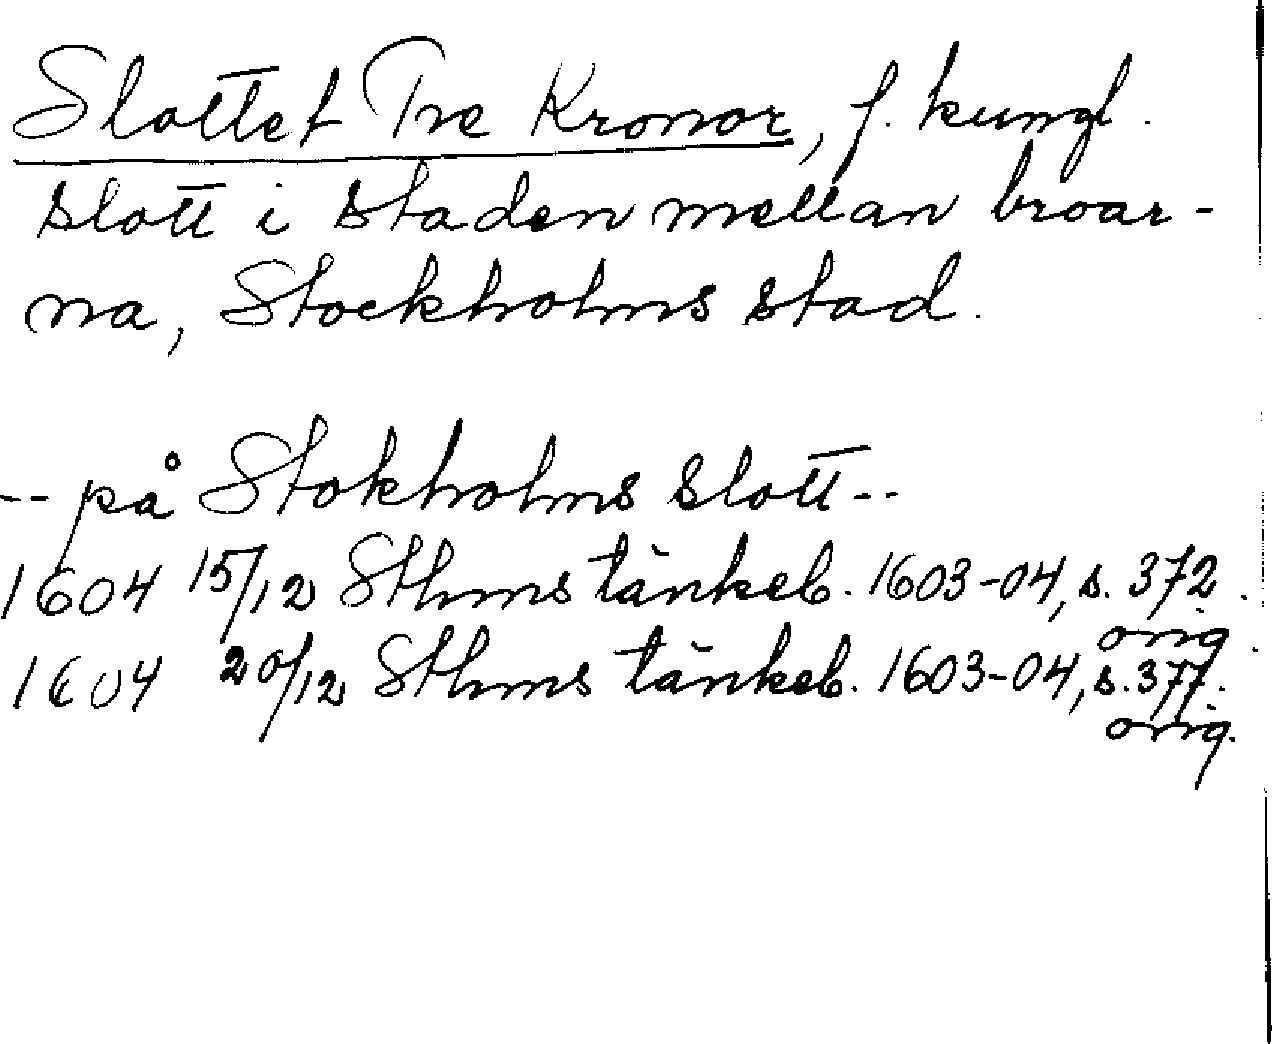 Slottet Tre Kronor, f. kungl.
slott i staden mellan broar-
na, Stockholms stad.
-- på Stokholms slott --
1604 15/12 Sthms tänkeb. 1603-04, s. 372.
orig.
1604 20/12 Sthms tänkeb. 1603-04, s. 377.
orig.